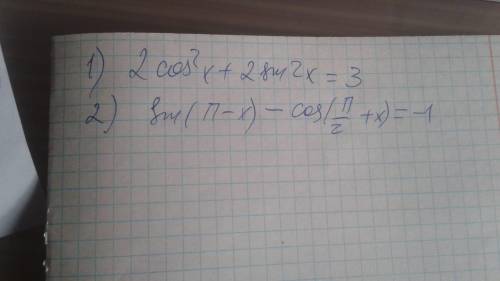 1) 2 cos²x + 2 sin²x = 3
2) sin(π-x) - cos(π/2 +x) = -1